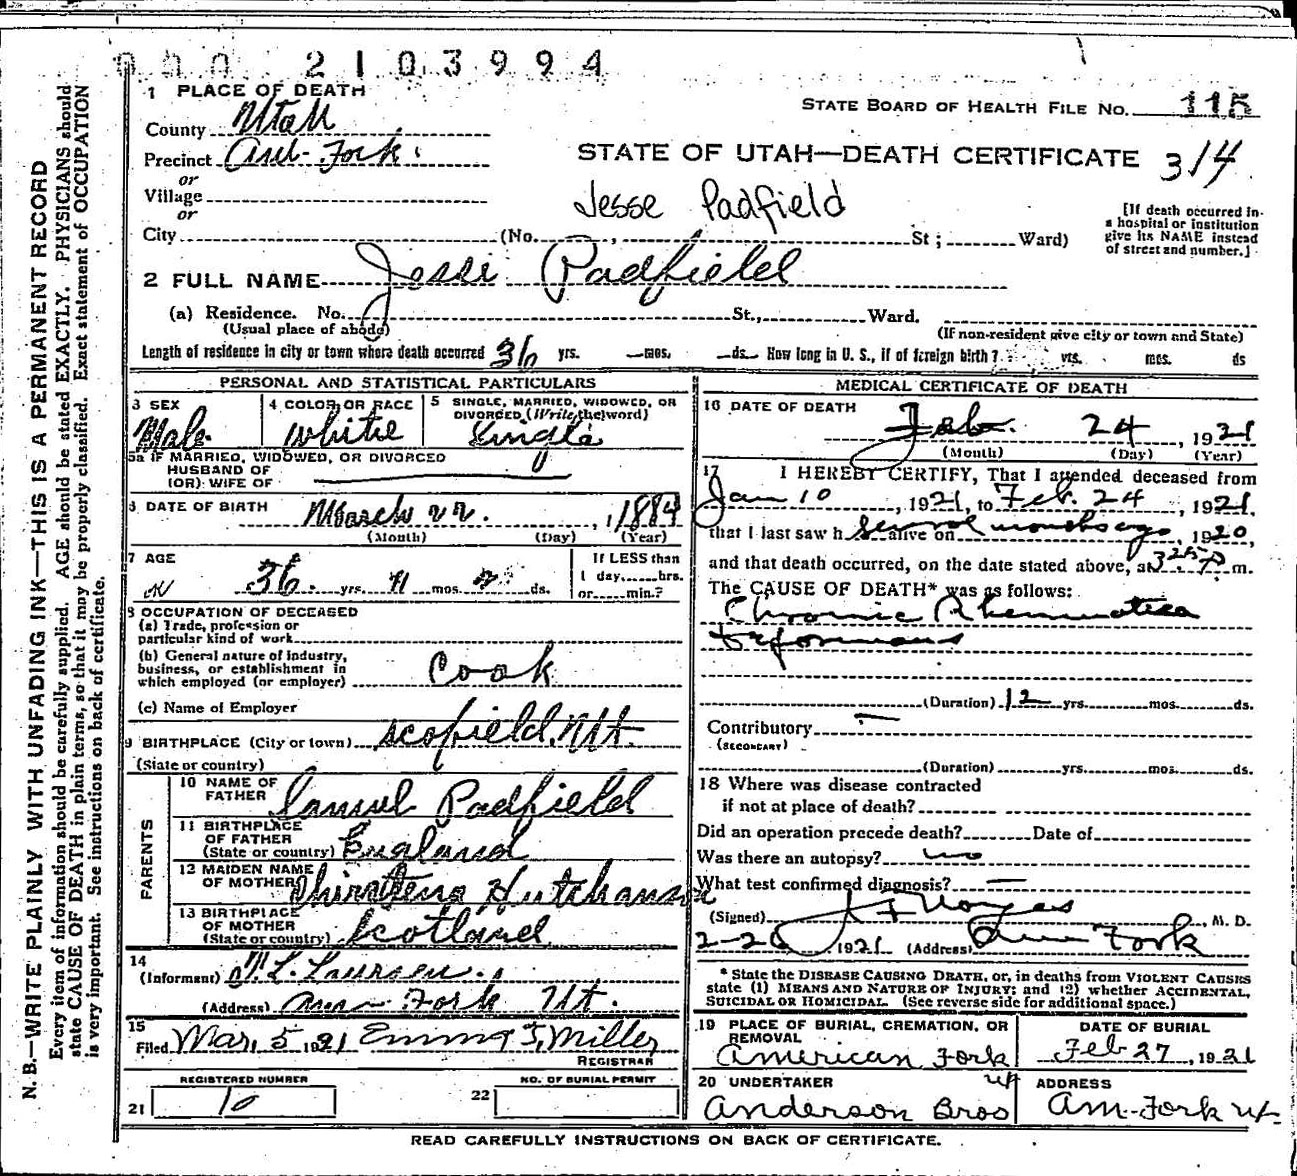 2103994
1 PLACE OF DEATH
STATE BOARD OF HEALTH FILE No. 115
County Utah
Precinct Am. Fork.
STATE OF UTAH—DEATH CERTIFICATE 314
or
Village
Jesse Padfield
or
City (No. St; Ward)
[If death occurred in a hospital or institution give its NAME instead of street and number.]
2 FULL NAME Jessi Padfield
(a) Residence. No. St., Ward.
(Usual place of abode)
(If non-resident give city or town and State)
Length of residence in city or town where death occurred 36 yrs. — mos. — ds. How long in U. S., if of foreign birth? yrs. mos. ds
PERSONAL AND STATISTICAL PARTICULARS
3 SEX
Male
4 COLOR OR RACE
White
5 SINGLE, MARRIED, WIDOWED, OR DIVORCED (Write the word)
Single
5a IF MARRIED, WIDOWED, OR DIVORCED
HUSBAND OF
(OR) WIFE OF
6 DATE OF BIRTH March 22. 1884
(Month) (Day) (Year)
7 AGE
36 yrs. 11 mos. 2 ds.
If LESS than
1 day......hrs.
or......min.?
8 OCCUPATION OF DECEASED
(a) Trade, profession or
particular kind of work
(b) General nature of industry,
business, or establishment in
which employed (or employer) Cook
(c) Name of Employer
9 BIRTHPLACE (City or town) Scofield, Ut.
(State or country)
PARENTS
10 NAME OF FATHER Samuel Padfield
11 BIRTHPLACE OF FATHER
(State or country) England
12 MAIDEN NAME OF MOTHER Hutchanson
13 BIRTHPLACE OF MOTHER
(State or country) Scotland
14
(Informant) Laursen
(Address) Am Fork Ut.
15
Filed Mar. 5 1921 Emma J. Miller
REGISTRAR
REGISTERED NUMBER
21 10
NO. OF BURIAL PERMIT
22
MEDICAL CERTIFICATE OF DEATH
16 DATE OF DEATH
Feb. 24, 1921
(Month) (Day) (Year)
17 I HEREBY CERTIFY, That I attended deceased from
Jan 10, 1921, to Feb. 24, 1921,
that I last saw h alive on several months ago, 1920,
and that death occurred, on the date stated above, at 3 25 P. m.
The CAUSE OF DEATH* was as follows:
Chronic Rheumatica
Deformans
(Duration) 12 yrs. mos. ds.
Contributory —
(SECONDARY)
(Duration) yrs. mos. ds.
18 Where was disease contracted
if not at place of death?
Did an operation precede death? Date of
Was there an autopsy? no
What test confirmed diagnosis? —
(Signed) Noyes, M. D.
2-26, 1921 (Address) Am Fork
* State the DISEASE CAUSING DEATH, or, in deaths from VIOLENT CAUSES
state (1) MEANS AND NATURE OF INJURY; and (2) whether ACCIDENTAL,
SUICIDAL OR HOMICIDAL. (See reverse side for additional space.)
19 PLACE OF BURIAL, CREMATION, OR REMOVAL
American Fork Ut
DATE OF BURIAL
Feb 27, 1921
20 UNDERTAKER
Anderson Bros
ADDRESS
Am. Fork Ut
READ CAREFULLY INSTRUCTIONS ON BACK OF CERTIFICATE.
N. B.—WRITE PLAINLY WITH UNFADING INK—THIS IS A PERMANENT RECORD
Every item of information should be carefully supplied. AGE should be stated EXACTLY. PHYSICIANS should
state CAUSE OF DEATH in plain terms, so that it may be properly classified. Exact statement of OCCUPATION
is very important. See instructions on back of certificate.